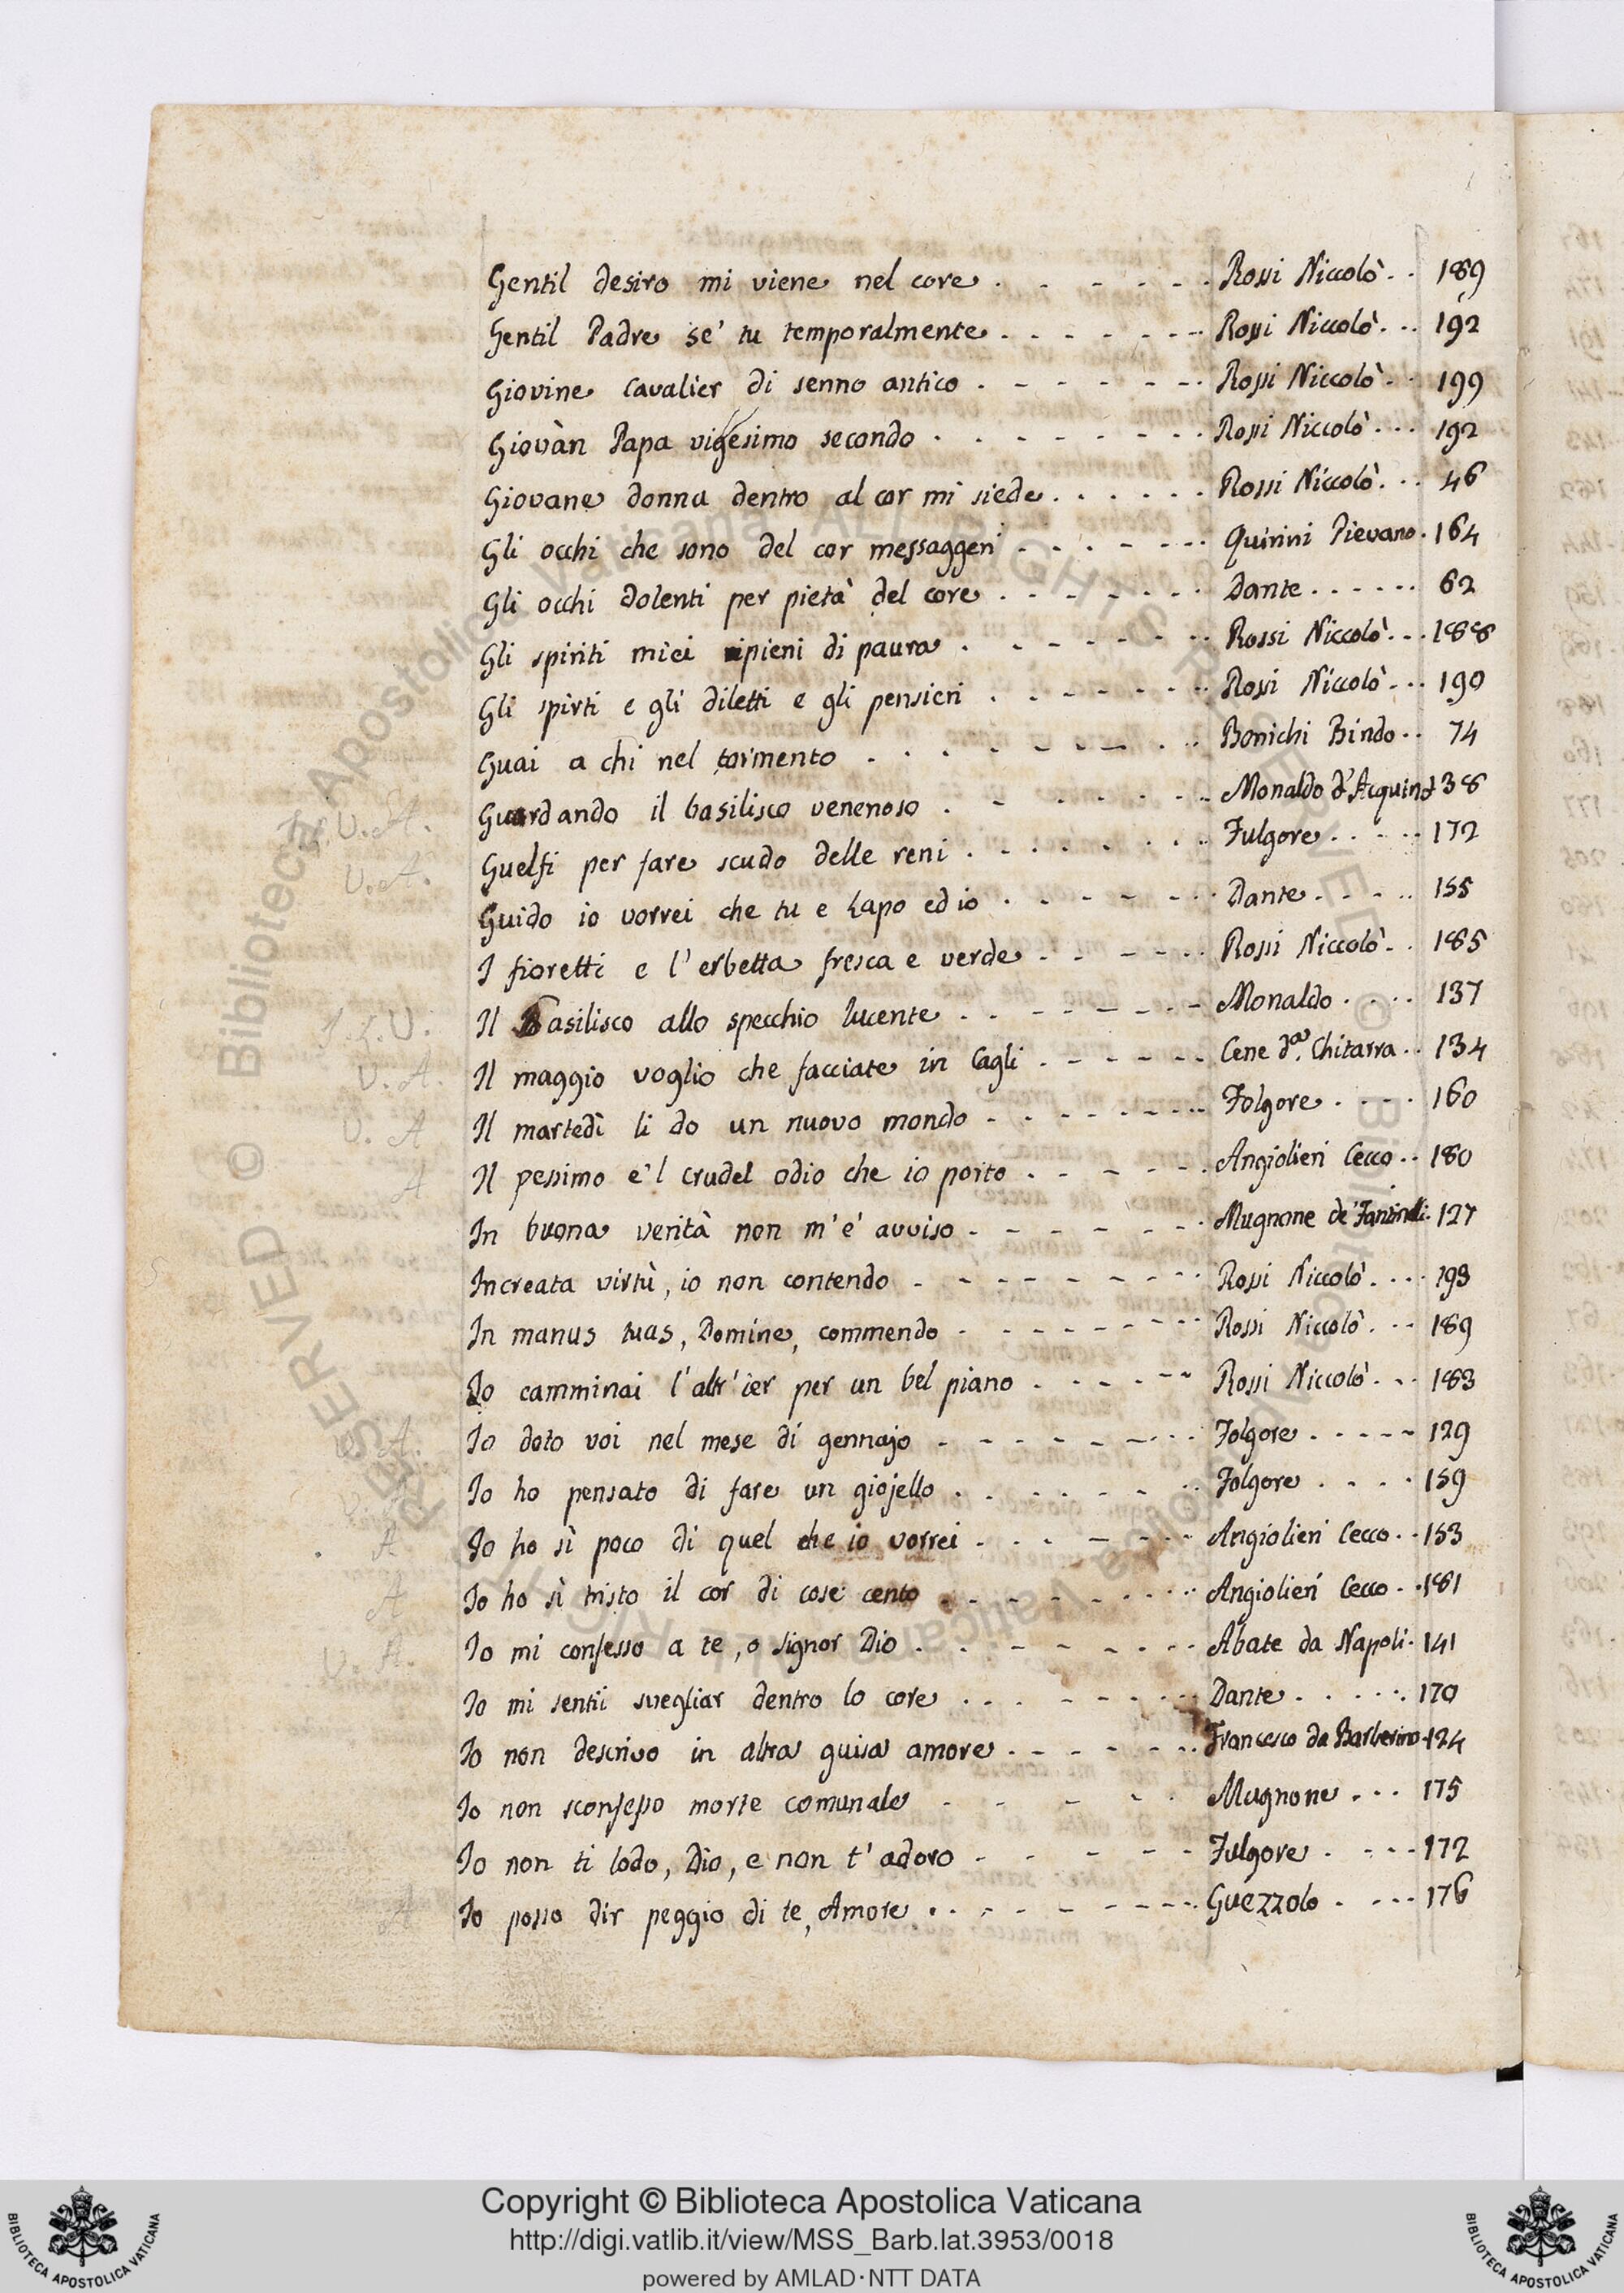 Gentil desiro mi viene nel core . . - - - - . Rossi Niccolò. . 189
Gentil Padre se' tu temporalmente . . - - - - . . Rossi Niccolò. . . 192
Giovine Cavalier di senno antico . - - - - - . Rossi Niccolò. . 199
Giovàn Papa vigesimo secondo . . . - - - - . . Rossi Niccolò . . . 192
Giovane donna dentro al cor mi siede . . . . . . Rossi Niccolò. . . 46
Gli occhi che sono del cor messaggeri . - . - - . . Quirini Pievano . 164
Gli occhi dolenti per pietà del core . . - - - . . Dante . . . . . . 62
Gli spiriti miei ripieni di paura . . - - - - . . Rossi Niccolò. . . 188
Gli spirti e gli diletti e gli pensieri . . - - - - . . Rossi Niccolò. . . 190
Guai a chi nel tormento . . . - - - - . . Bonichi Bindo . . 74
Guardando il basilisco venenoso . - . - - . . . Monaldo d'Acquino 138
I. U. A.
Guelfi per fare scudo delle reni . - . . . . . . Fulgore . . - . . 172
U. A.
Guido io vorrei che tu e Lapo ed io . . - - - - . . Dante . . - - . . 155
I fioretti e l'erbetta fresca e verde . - - - - . . Rossi Niccolò . . 185
Il Basilisco allo specchio lucente . . - - - - - - Monaldo . . . . 137
I. L. U.
Il maggio voglio che facciate in Cagli . - - - - . . Cene da. Chitarra . . 134
U. A.
Il martedì li do un nuovo mondo . - - - - - . . Folgore . . - . . 160
U. A
Il pessimo e 'l crudel odio che io porto . . - - - - . Angiolieri Cecco . . 180
A
In buona verità non m'è avviso . - - - - - . . Mugnone de' Fantinelli . 127
Increata virtù, io non contendo . - - - - - - . . Rossi Niccolò . . . . 193
In manus tuas, Domine, commendo . - - - - - . . . Rossi Niccolò . . - 189
Io camminai l'altr'ier per un bel piano . - - - - - Rossi Niccolò . . . 183
Io doto voi nel mese di gennajo . - - - - - . . . Folgore . . . - - - 129
U. A.
Io ho pensato di fare un giojello . . . . - - . . Folgore . . . . 159
Io ho sì poco di quel che io vorrei . . . - - - . . Angiolieri Cecco . . 153
A
Io ho sì tristo il cor di cose cento . . - - - . . . Angiolieri Cecco . . 181
A
Io mi confesso a te, o signor Dio . . . - - - - . . Abate da Napoli . 141
U. A.
Io mi sentii svegliar dentro lo core . . . - - - . . Dante . . . . . . 170
Io non descrivo in altra guisa amore . . - - - - . . Francesco da Barberino . 124
Io non sconfesso morte comunale . - - - . . Mugnone . . . 175
Io non ti lodo, Dio, e non t'adoro . - - - - - Fulgore . . - - . 172
Io posso dir peggio di te, Amore . . . - - - - - . . Guezzolo . - - . . 176
A
© Biblioteca Apostolica Vaticana ALL RIGHTS RESERVED
© Biblioteca Apostolica Vaticana ALL RIGHTS RESERVED
Copyright © Biblioteca Apostolica Vaticana
http://digi.vatlib.it/view/MSS_Barb.lat.3953/0018
powered by AMLAD·NTT DATA
BIBLIOTECA APOSTOLICA VATICANA
BIBLIOTECA APOSTOLICA VATICANA